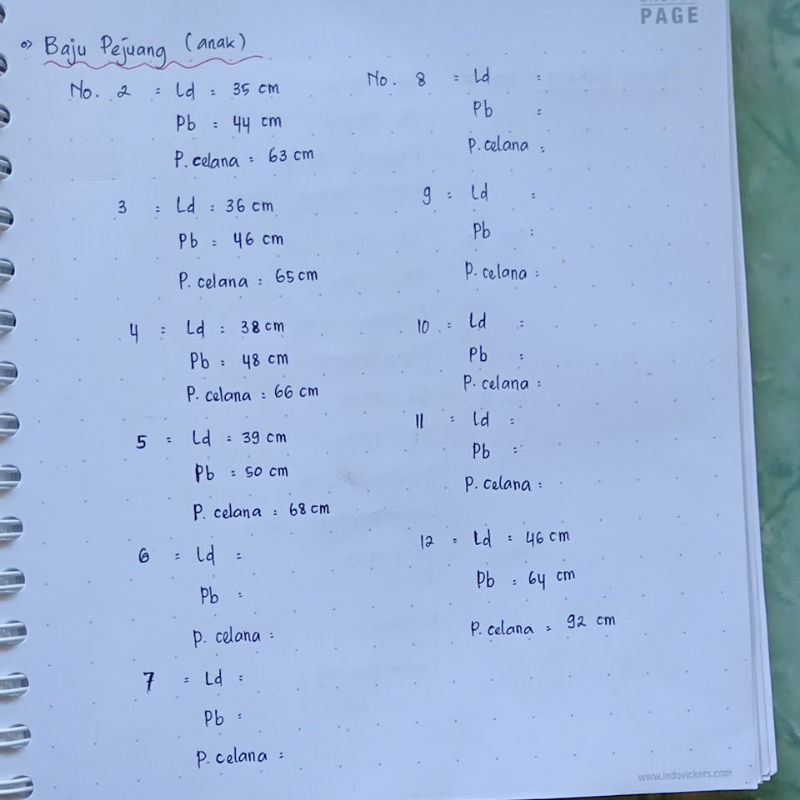 PAGE
Baju Pejuang (anak)
No. 2 = Ld = 35 cm
Pb = 44 cm
P. celana = 63 cm
3 = Ld = 36 cm
Pb = 46 cm
P. celana = 65 cm
4 = Ld = 38 cm
Pb = 48 cm
P. celana = 66 cm
5 = Ld = 39 cm
Pb = 50 cm
P. celana = 68 cm
6 = Ld =
Pb =
P. celana =
7 = Ld =
Pb =
P. celana =
No. 8 = Ld =
Pb =
P. celana =
9 = Ld =
Pb =
P. celana =
10 = Ld =
Pb =
P. celana =
11 = Ld =
Pb =
P. celana =
12 = Ld = 46 cm
Pb = 64 cm
P. celana = 92 cm
www.indovickers.com